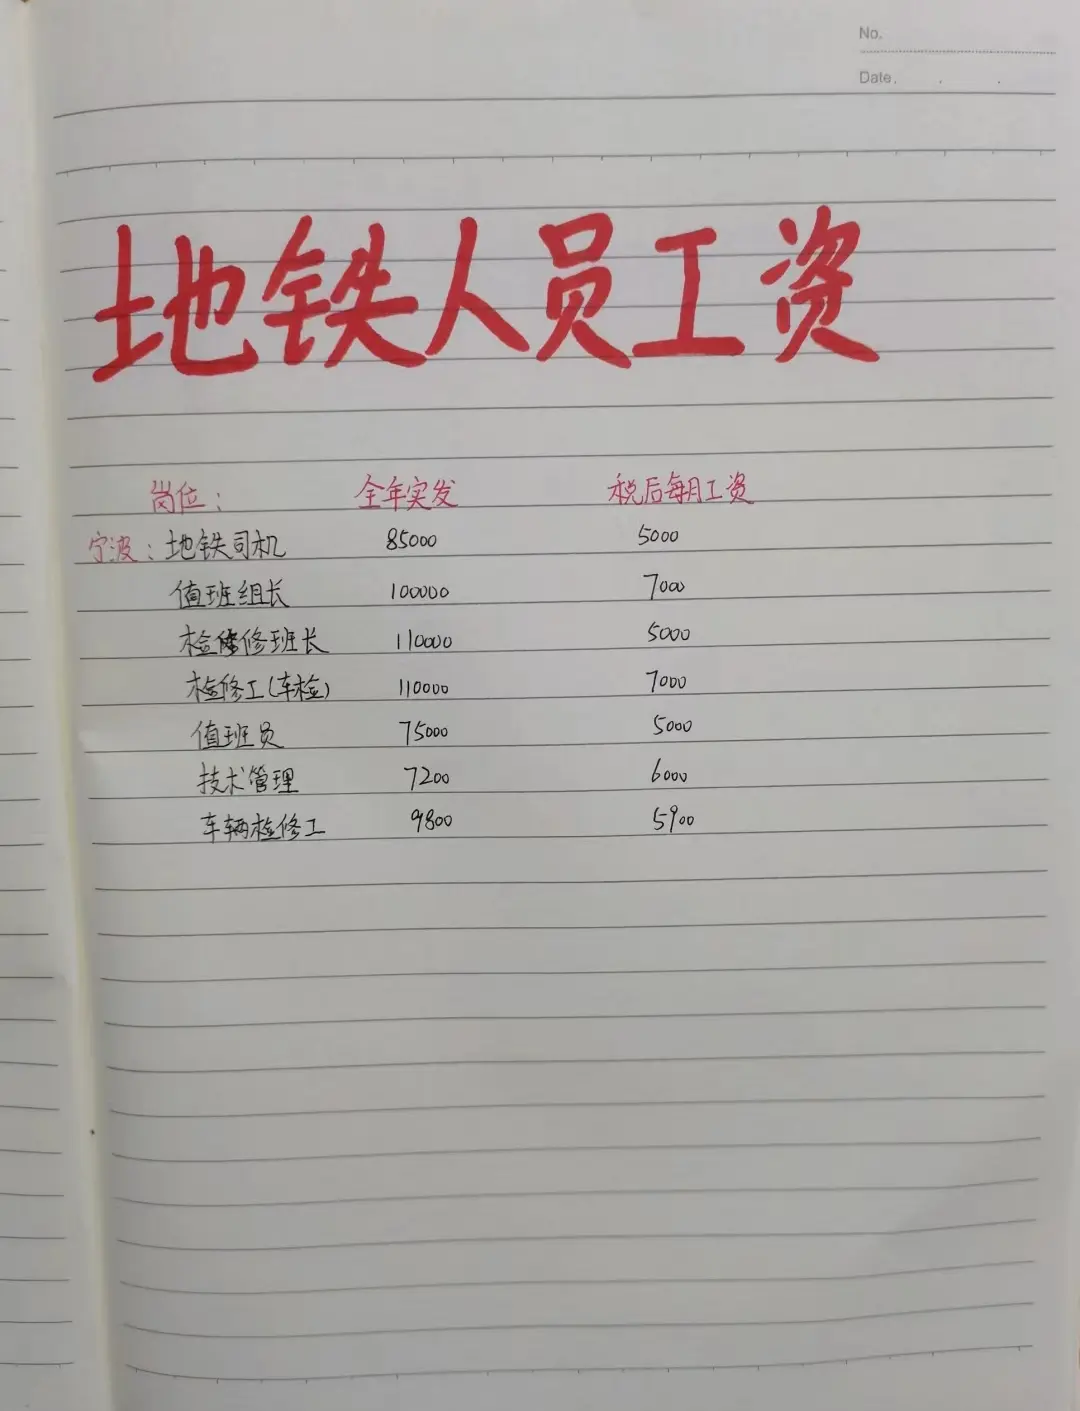 No.
Date. . .
地铁人员工资
岗位： 全年实发 税后每月工资
宁波：地铁司机 85000 5000
值班组长 100000 7000
检修班长 110000 5000
检修工(车检) 110000 7000
值班员 75000 5000
技术管理 7200 6000
车辆检修工 9800 5900